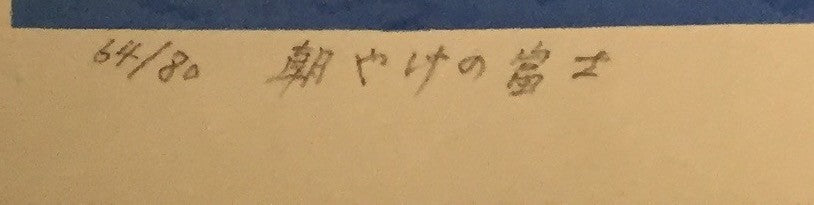 64/80 朝やけの富士